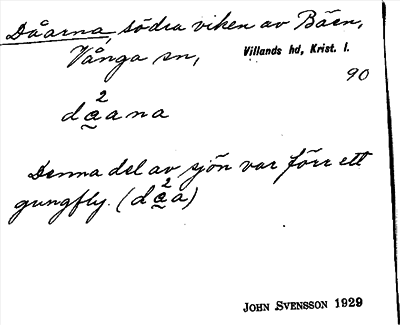 Dåarna, södra viken av Båen,
Vånga sn, Villands hd, Krist. l.
90
2
da̰ana
Denna del av sjön var förr ett
2
gungfly. (da̰a)
JOHN SVENSSON 1929